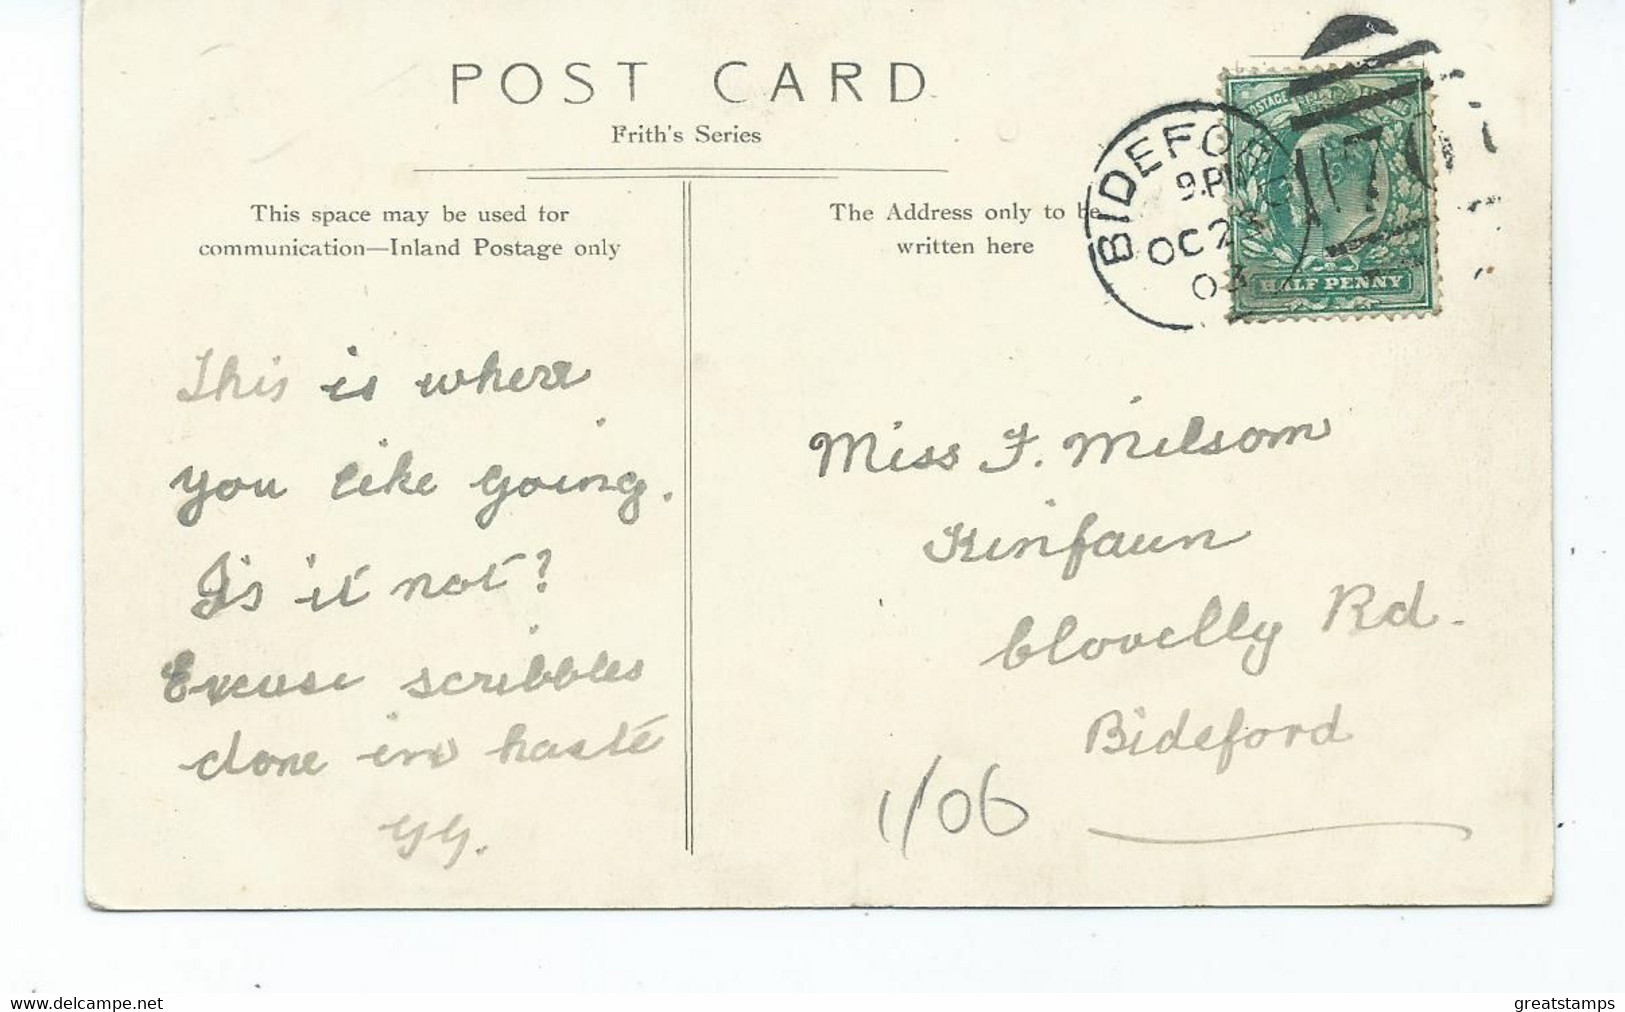 POST CARD
Frith's Series
This space may be used for
communication—Inland Postage only
The Address only to be
written here
BIDEFORD
9.PM
OC 2
03
HALF PENNY
This is where
you like going.
Is it not?
Excuse scribbles
done in haste
GG.
Miss F. Milsom
Kinfaun
Clovelly Rd.
Bideford
1/06
www.delcampe.net
greatstamps